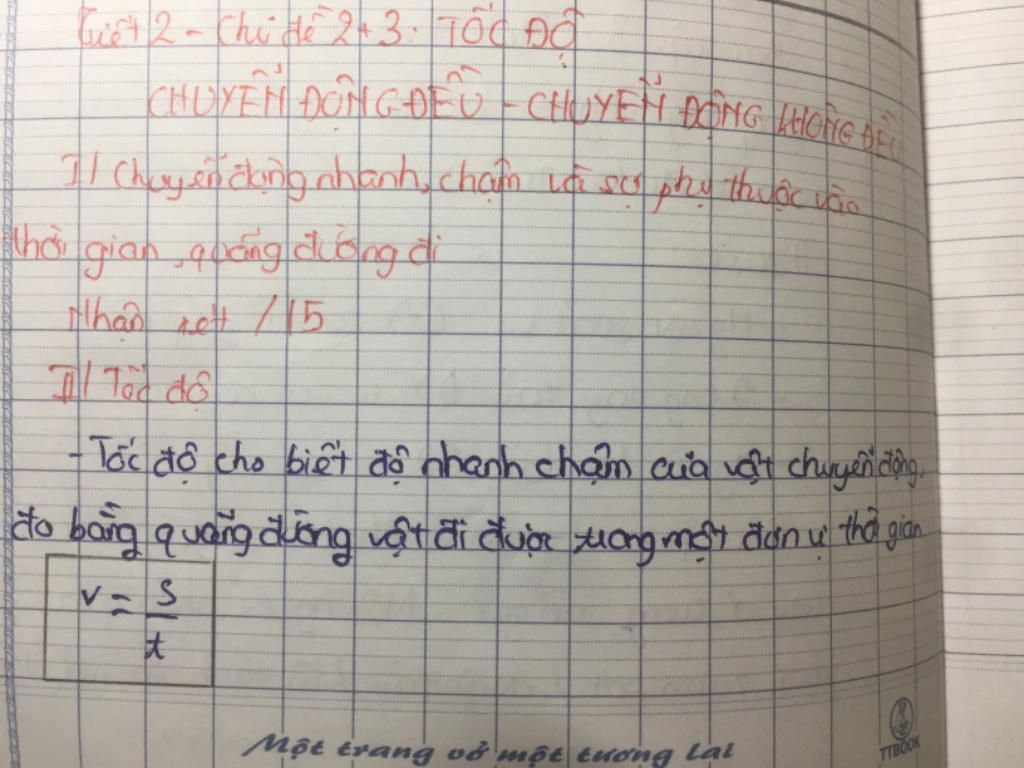 Tiết 2 - Chủ đề 2+3: TỐC ĐỘ
CHUYỂN ĐỘNG ĐỀU - CHUYỂN ĐỘNG KHÔNG ĐỀU
I/ Chuyển động nhanh, chậm và sự phụ thuộc vào
thời gian, quãng đường đi
Nhận xét /15
II/ Tốc độ
- Tốc độ cho biết độ nhanh chậm của vật chuyển động,
đo bằng quãng đường vật đi được trong một đơn vị thời gian
v = s
t
Một trang vở một tương lai
TTBOOK